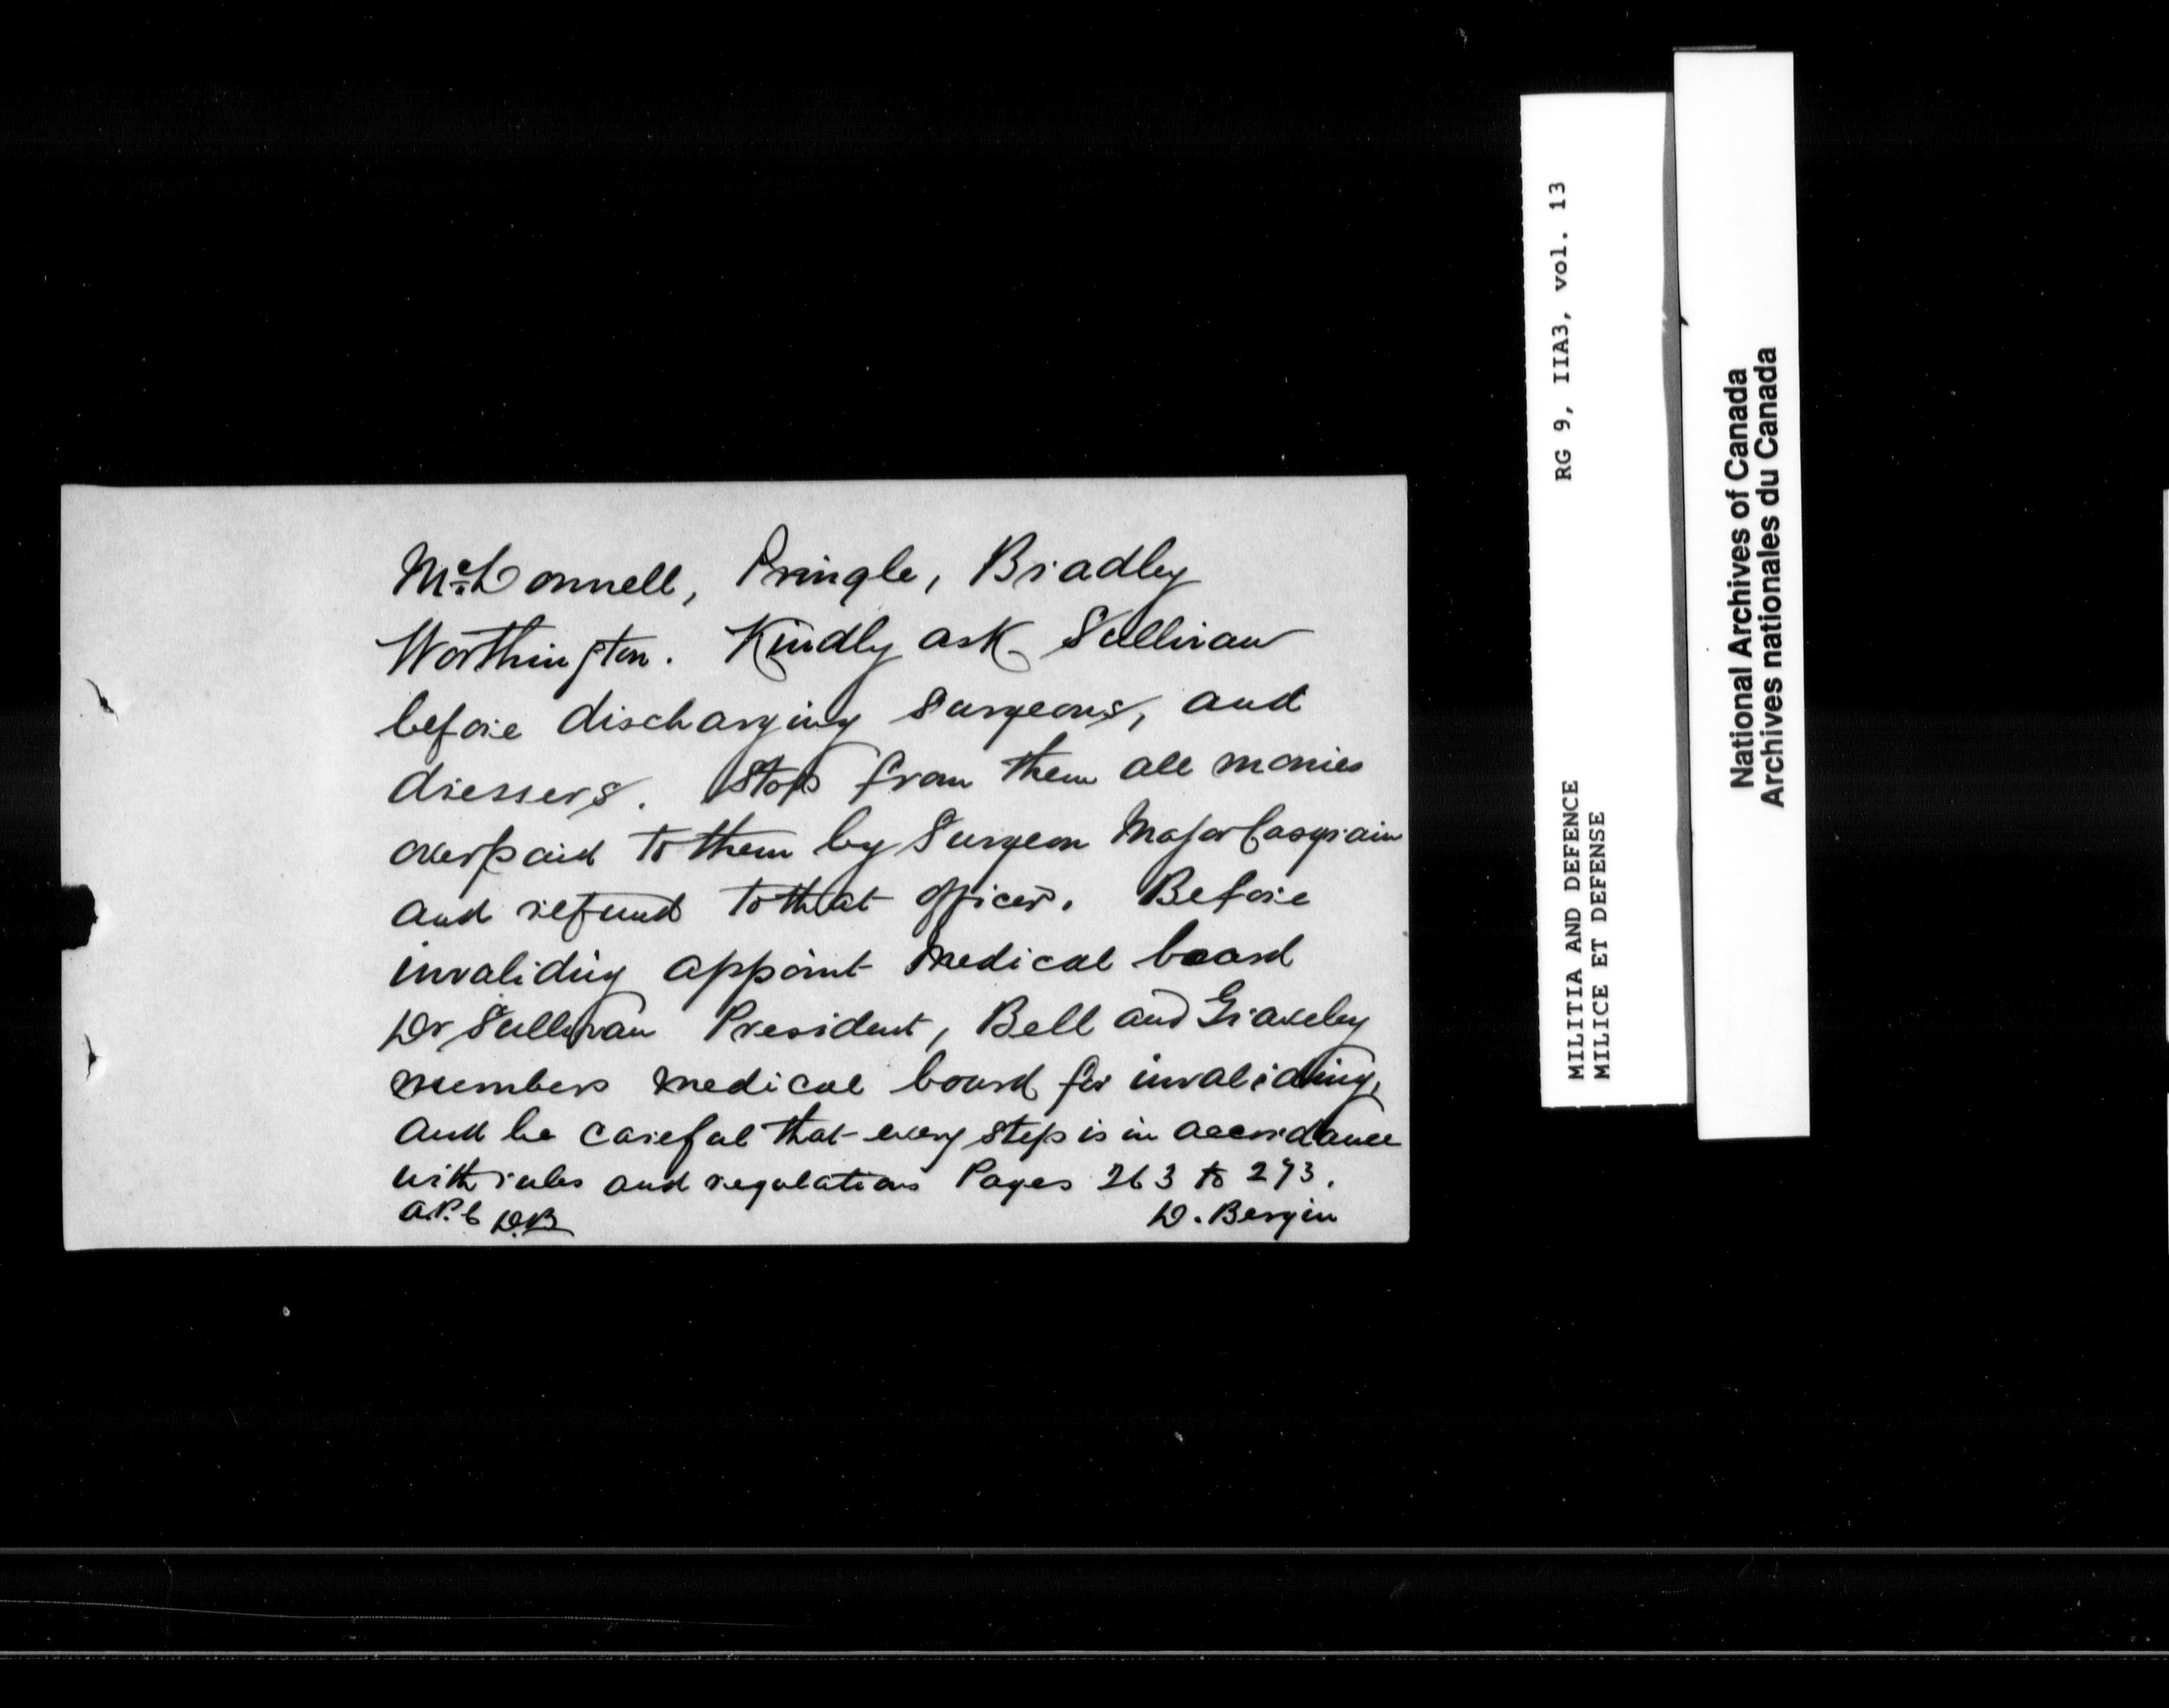 McDonnell, Pringle, Bradley
Worthington. Kindly ask Sullivan
before discharging surgeons, and
dressers. Stop from them all monies
overpaid to them by Surgeon Major Casgrain
and refund to that officer. Before
invaliding appoint medical board
Dr Sullivan President, Bell and Gravely
members medical board for invaliding,
and be careful that every step is in accordance
with rules and regulations Pages 263 to 273.
D.B. D. Bergin
MILITIA AND DEFENCE RG 9, IIA3, vol. 13
MILICE ET DEFENSE
National Archives of Canada
Archives nationales du Canada